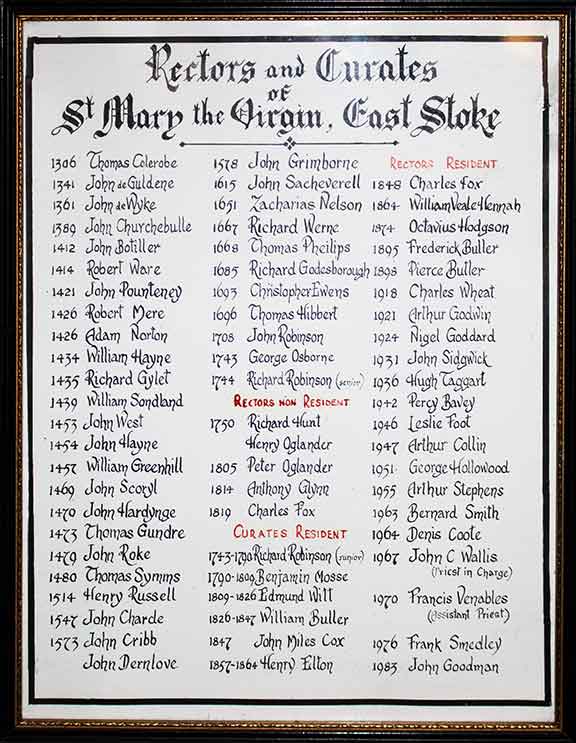 Rectors and Curates
of
St Mary the Virgin, East Stoke
1306 Thomas Colerobe
1341 John de Guldene
1361 John de Wyke
1389 John Churchebulle
1412 John Botiller
1414 Robert Ware
1421 John Pounteney
1426 Robert Mere
1426 Adam Norton
1434 William Hayne
1435 Richard Gylet
1439 William Sondland
1453 John West
1454 John Hayne
1457 William Greenhill
1469 John Scoryl
1470 John Hardynge
1473 Thomas Gundre
1479 John Roke
1480 Thomas Symms
1514 Henry Russell
1547 John Charde
1573 John Cribb
John Dernlove
1578 John Grimborne
1615 John Sacheverell
1651 Zacharias Nelson
1667 Richard Werne
1668 Thomas Pheilips
1685 Richard Godesborough
1693 Christopher Ewens
1696 Thomas Hibbert
1708 John Robinson
1743 George Osborne
1744 Richard Robinson (senior)
RECTORS NON RESIDENT
1750 Richard Hunt
Henry Oglander
1805 Peter Oglander
1814 Anthony Glynn
1819 Charles Fox
CURATES RESIDENT
1743-1790 Richard Robinson (junior)
1790-1809 Benjamin Mosse
1809-1826 Edmund Witt
1826-1847 William Buller
1847 John Miles Cox
1857-1864 Henry Elton
RECTORS RESIDENT
1848 Charles Fox
1864 William Veale Hennah
1874 Octavius Hodgson
1895 Frederick Buller
1898 Pierce Butler
1918 Charles Wheat
1921 Arthur Godwin
1924 Nigel Goddard
1931 John Sidgwick
1936 Hugh Taggart
1942 Percy Bavey
1946 Leslie Foot
1947 Arthur Collin
1951 George Hollowood
1955 Arthur Stephens
1963 Bernard Smith
1964 Denis Coote
1967 John C Wallis
(Priest in Charge)
1970 Francis Venables
(Assistant Priest)
1976 Frank Smedley
1983 John Goodman